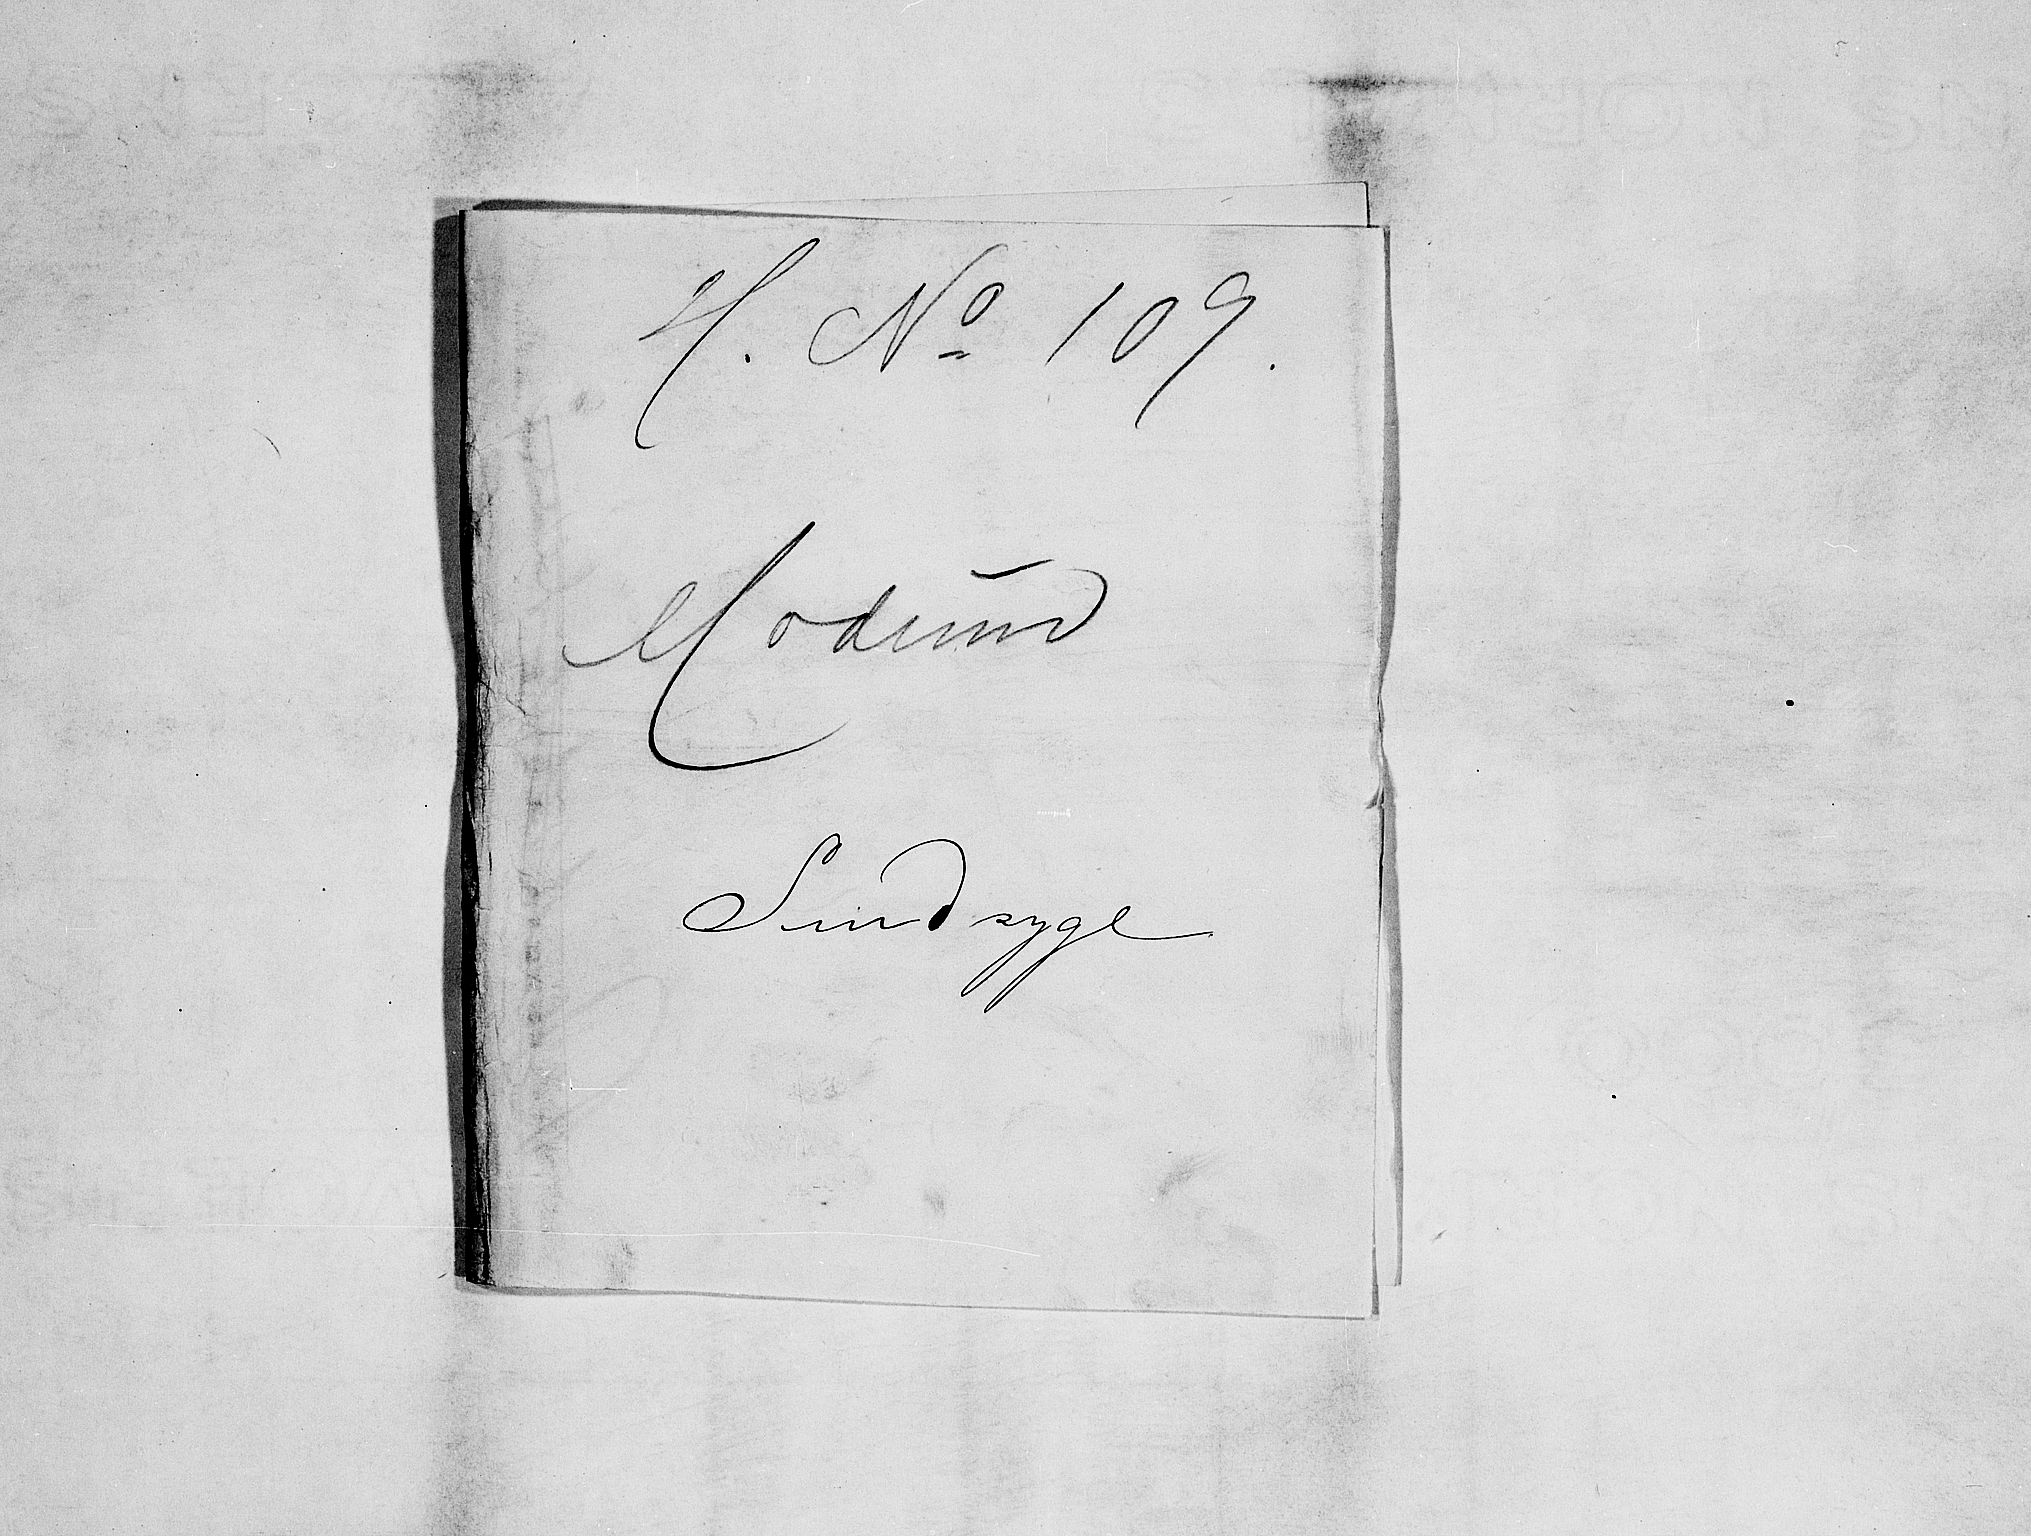 H. No 109.
Modum
Sindsyge